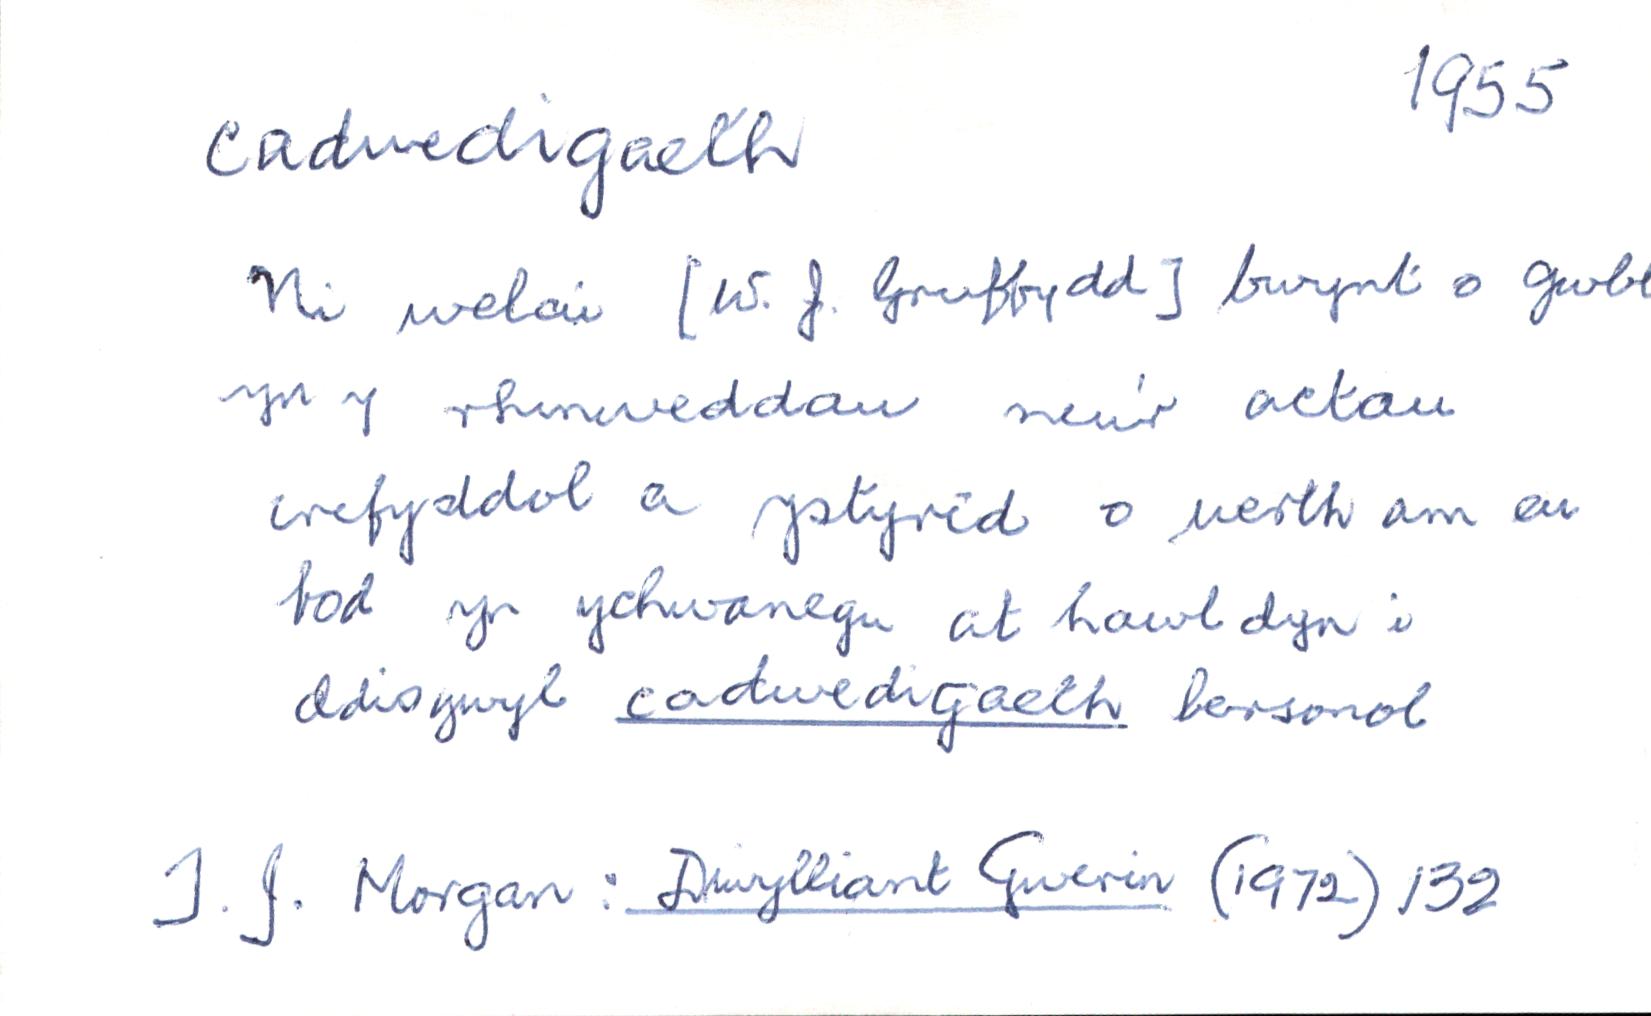 1955
cadwedigaeth
Ni welai [W. J. Gruffydd] bwynt o gwbl
yn y rhinweddau neu'r actau
crefyddol a ystyrid o werth am eu
bod yn ychwanegu at hawl dyn i
ddisgwyl cadwedigaeth bersonol
T. J. Morgan : Diwylliant Gwerin (1972) 132